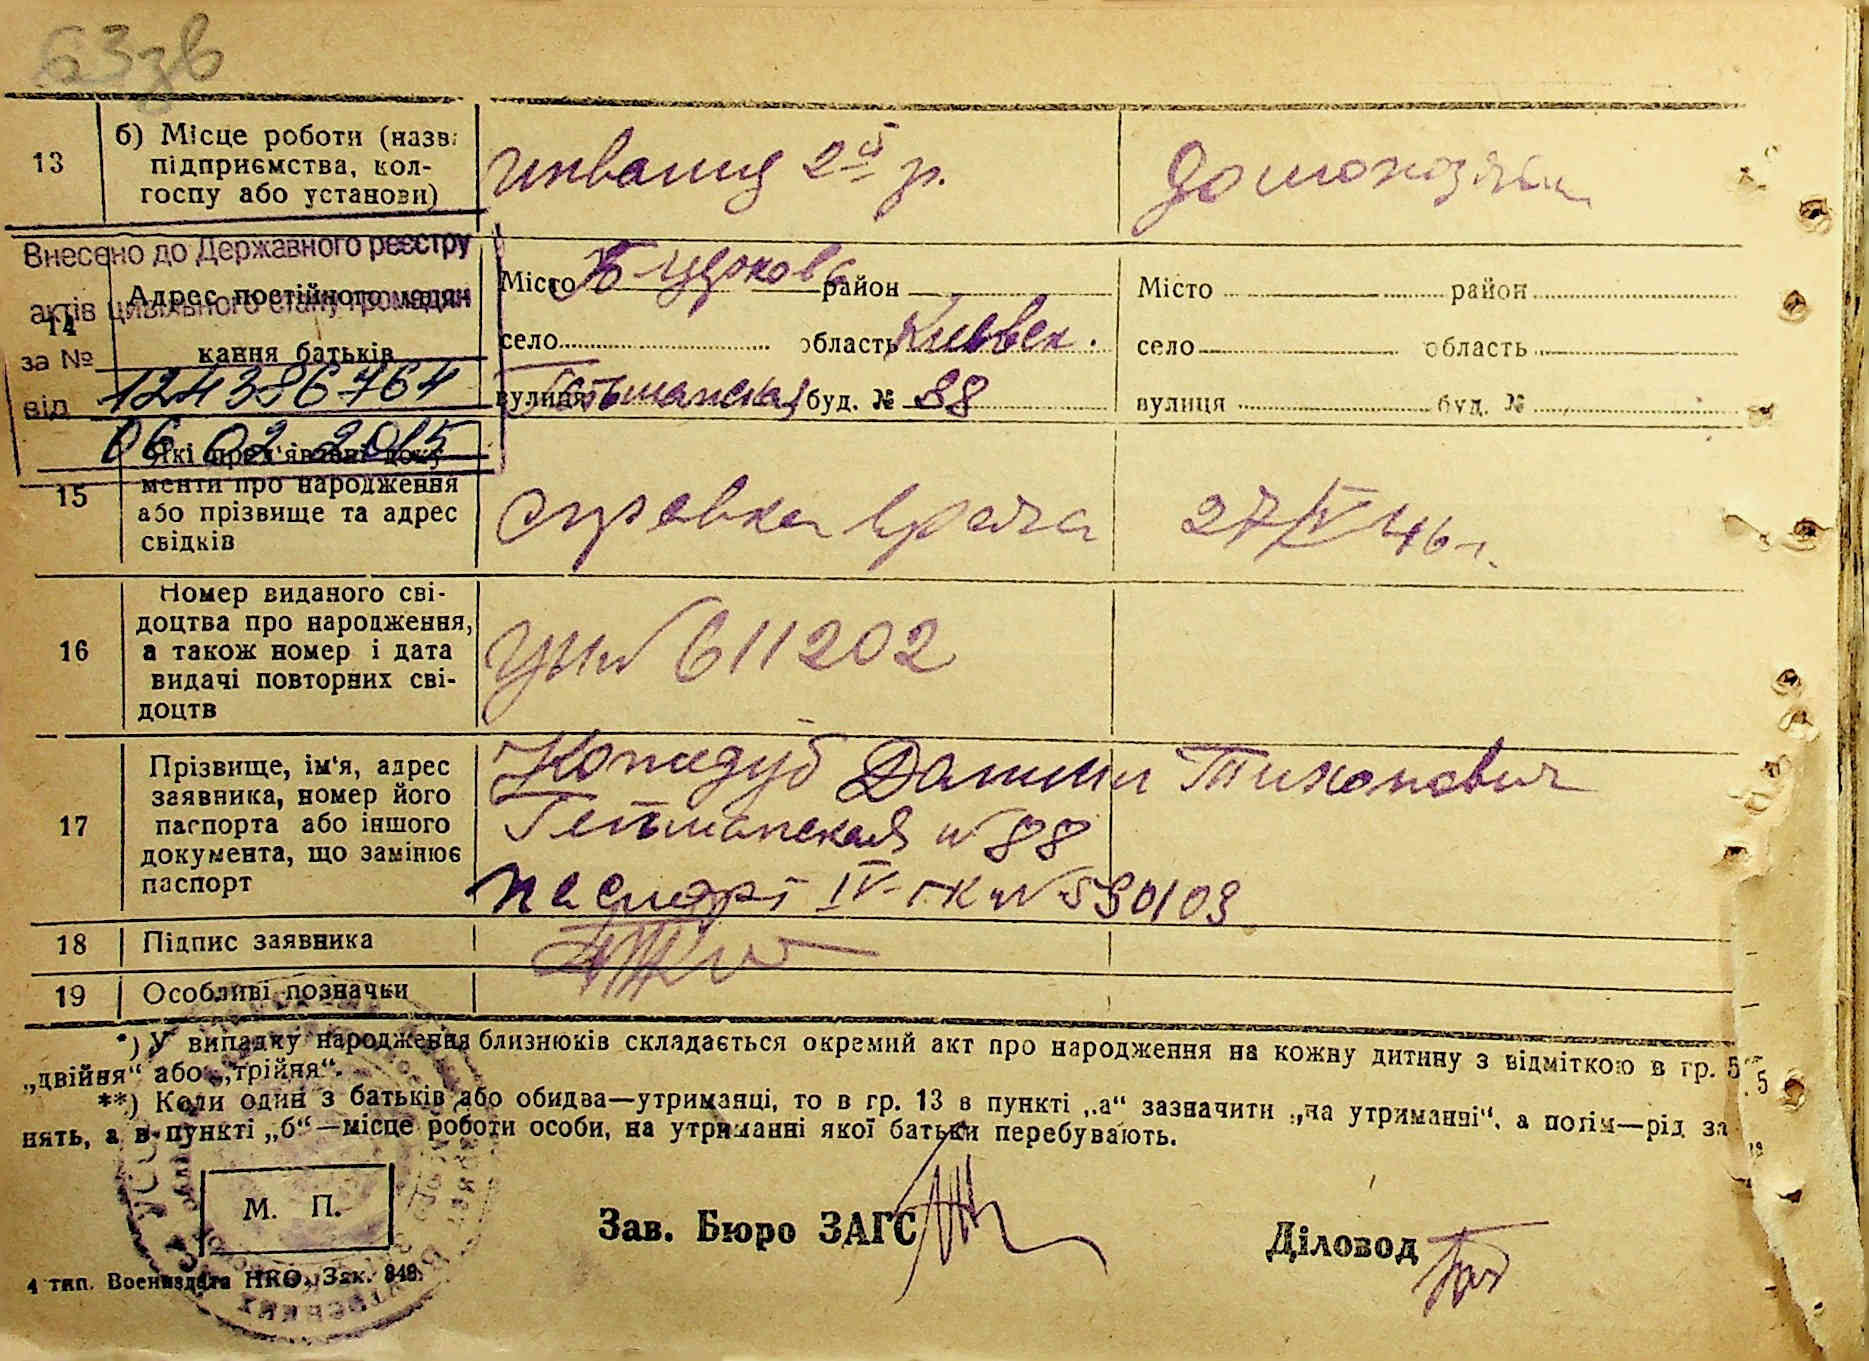 63зв
13 б) Місце роботи (назва
підприємства, кол-
госпу або установи)
инвалид 2й гр.
домохозяйк
Внесено до Державного реєстру
актів цивільного стану громадян
за №
124386764
від
06 02 2015
14 Адрес постійного меш-
кання батьків
Місто Б Церковь район
село область Киевск.
вулиця Гетьманская буд. № 88
Місто район
село область
вулиця буд. №
15 Які пред'явлені доку-
менти про народження
або прізвище та адрес
свідків
справка врача 27/IV 46 г.
16 Номер виданого сві-
доцтва про народження,
а також номер і дата
видачі повторних сві-
доцтв
№ 611202
17 Прізвище, ім'я, адрес
заявника, номер його
паспорта або іншого
документа, що замінює
паспорт
Кожедуб Даниил Тихонович
Гетьманская № 88
паспорт IV-ГК № 590109
18 Підпис заявника
19 Особливі позначки
*) У випадку народження близнюків складається окремий акт про народження на кожну дитину з відміткою в гр. 5
„двійня“ або „трійня“.
**) Коли один з батьків або обидва—утриманці, то в гр. 13 в пункті „а“ зазначити „на утриманні“, а потім—рід за
нять, а в пункті „б“—місце роботи особи, на утриманні якої батьки перебувають.
М. П.
Зав. Бюро ЗАГС
Діловод
4 тип. Воениздата НКО. Зак. 848.